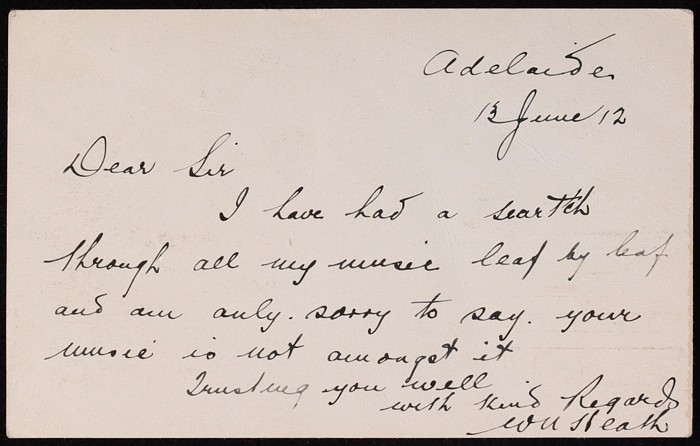 Adelaide
13 June 12
Dear Sir
I have had a seartch
through all my music leaf by leaf
and am only. sorry to say. your
music is not amongst it
Trusting you well
with kind Regards
WH Heath